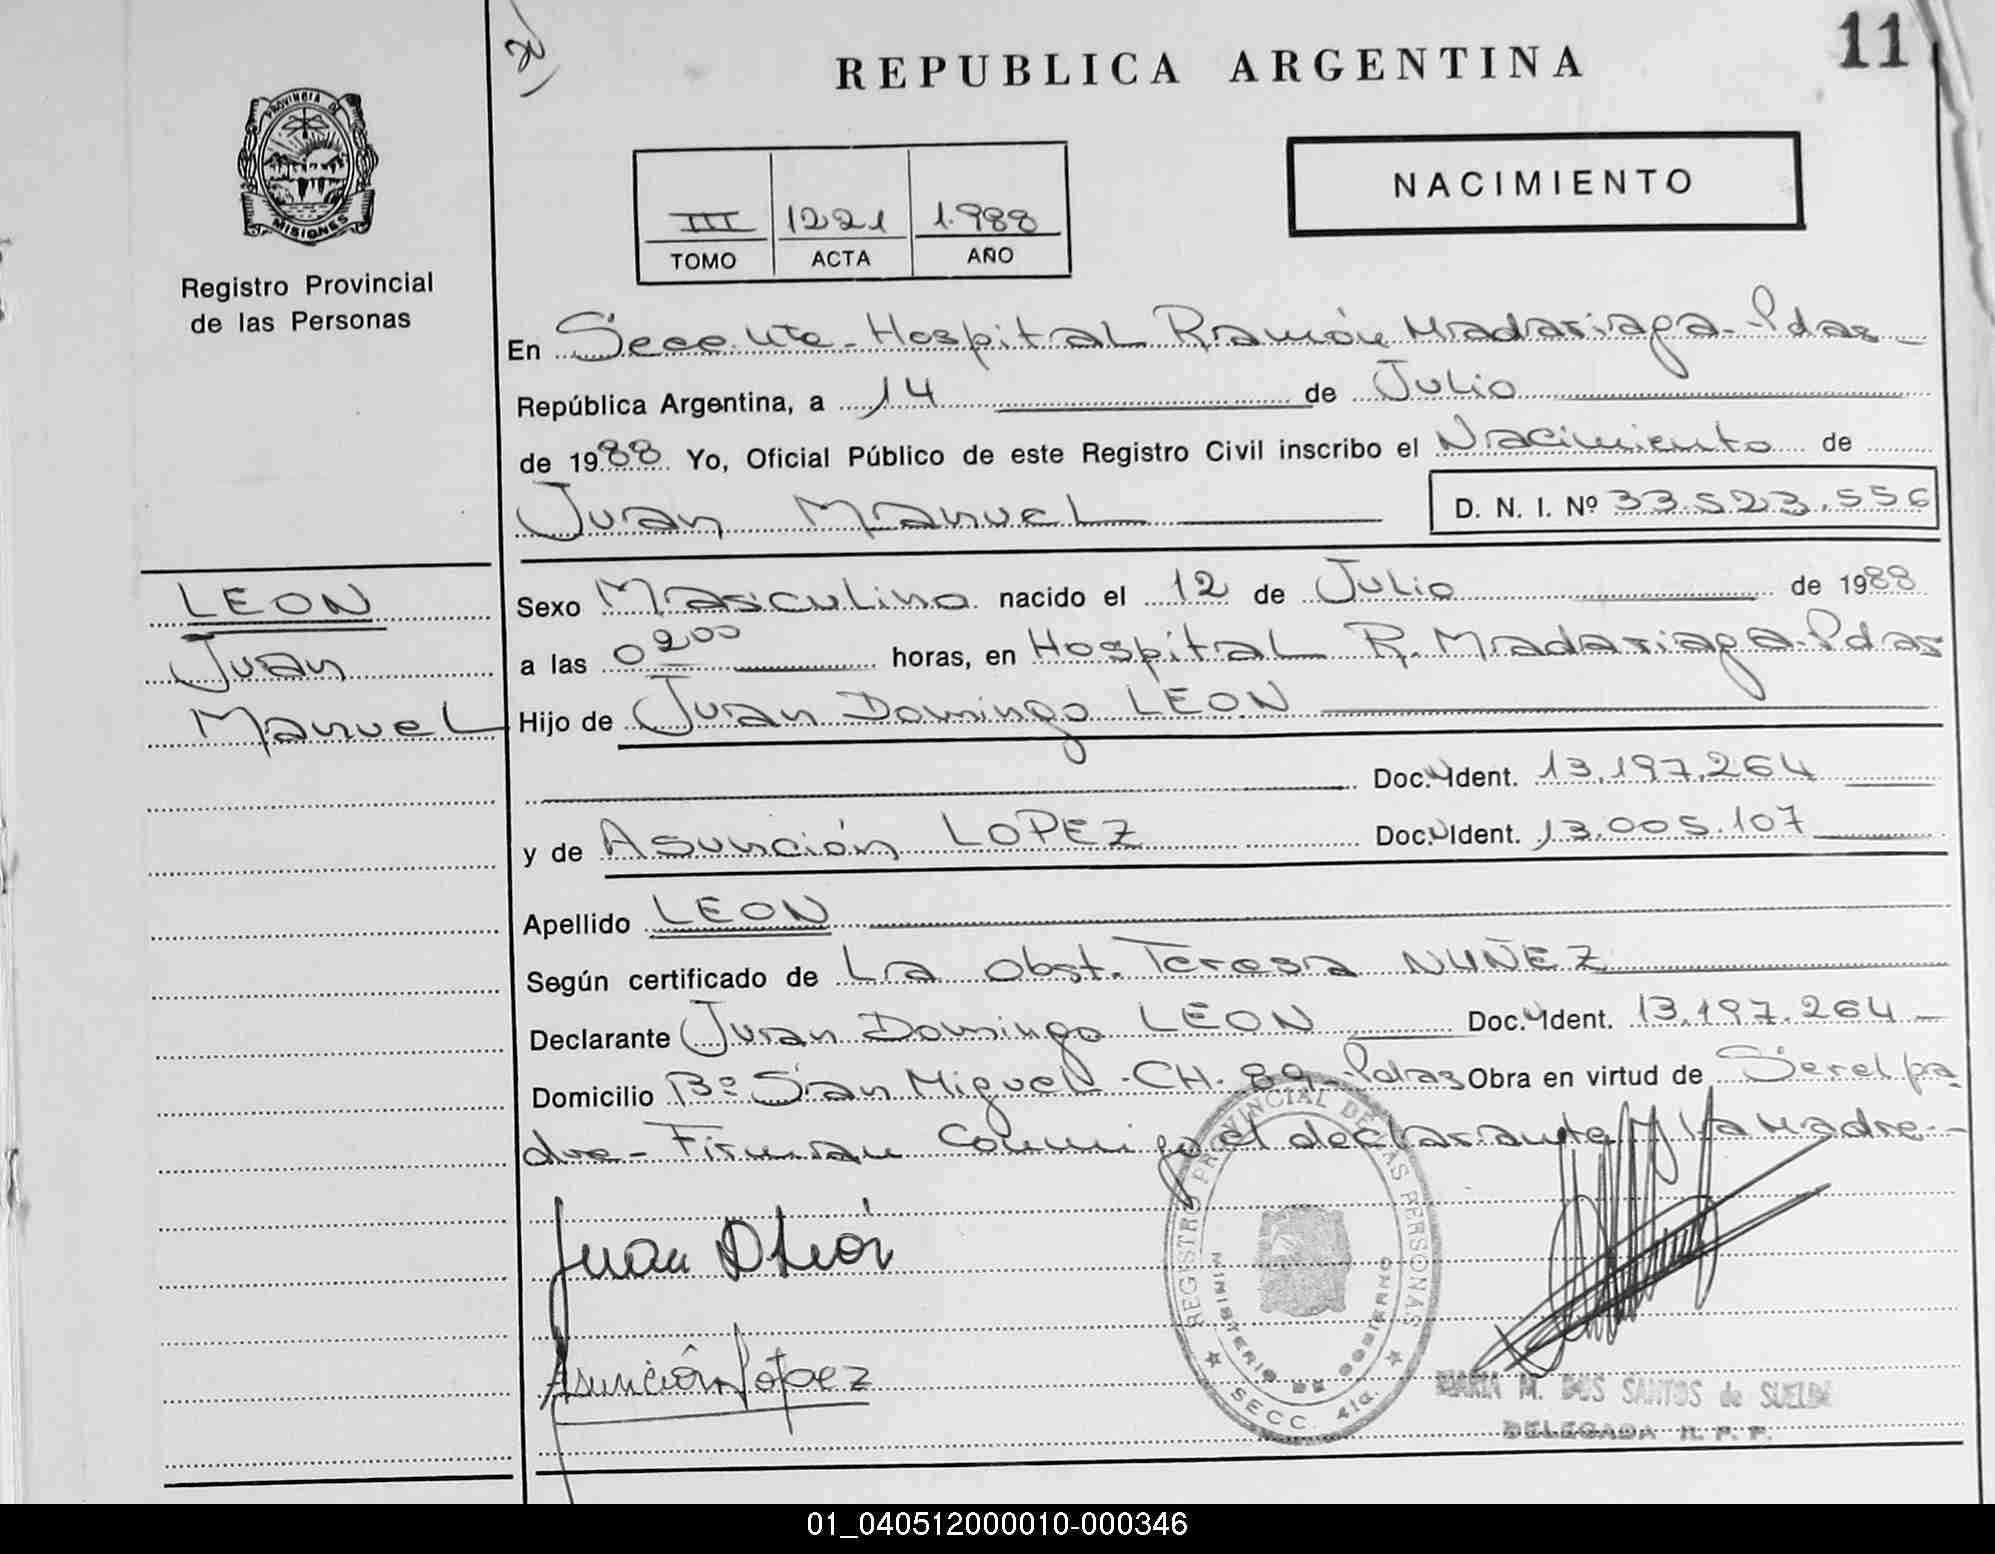 11
REPUBLICA ARGENTINA
PROVINCIA DE
MISIONES
Registro Provincial
de las Personas
III 1221 1.988
TOMO ACTA AÑO
NACIMIENTO
En Secc. Hospital Ramón Madariaga - Pdas -
República Argentina, a 14 de Julio
de 1988 Yo, Oficial Público de este Registro Civil inscribo el Nacimiento de
Juan Manuel D. N. I. Nº 33.523.556
LEON
Juan
Manuel
Sexo Masculino nacido el 12 de Julio de 1988
a las 0200 horas, en Hospital R. Madariaga - Pdas
Hijo de Juan Domingo LEON
Doc. Ident. 13.197.264
y de Asunción LOPEZ Doc. Ident. 13.005.107
Apellido LEON
Según certificado de La Obst. Teresa NUÑEZ
Declarante Juan Domingo LEON Doc. Ident. 13.197.264 -
Domicilio Bº San Miguel - CH. 89 - Pdas Obra en virtud de Ser el pa
dre - Firman conmigo el declarante y la madre -
Juan D León
Asunción López
REGISTRO PROVINCIAL DE LAS PERSONAS
MINISTERIO DE GOBIERNO
SECC. 4ta.
MARIA M. DOS SANTOS de SUELDO
DELEGADA R. P. P.
01_040512000010-000346